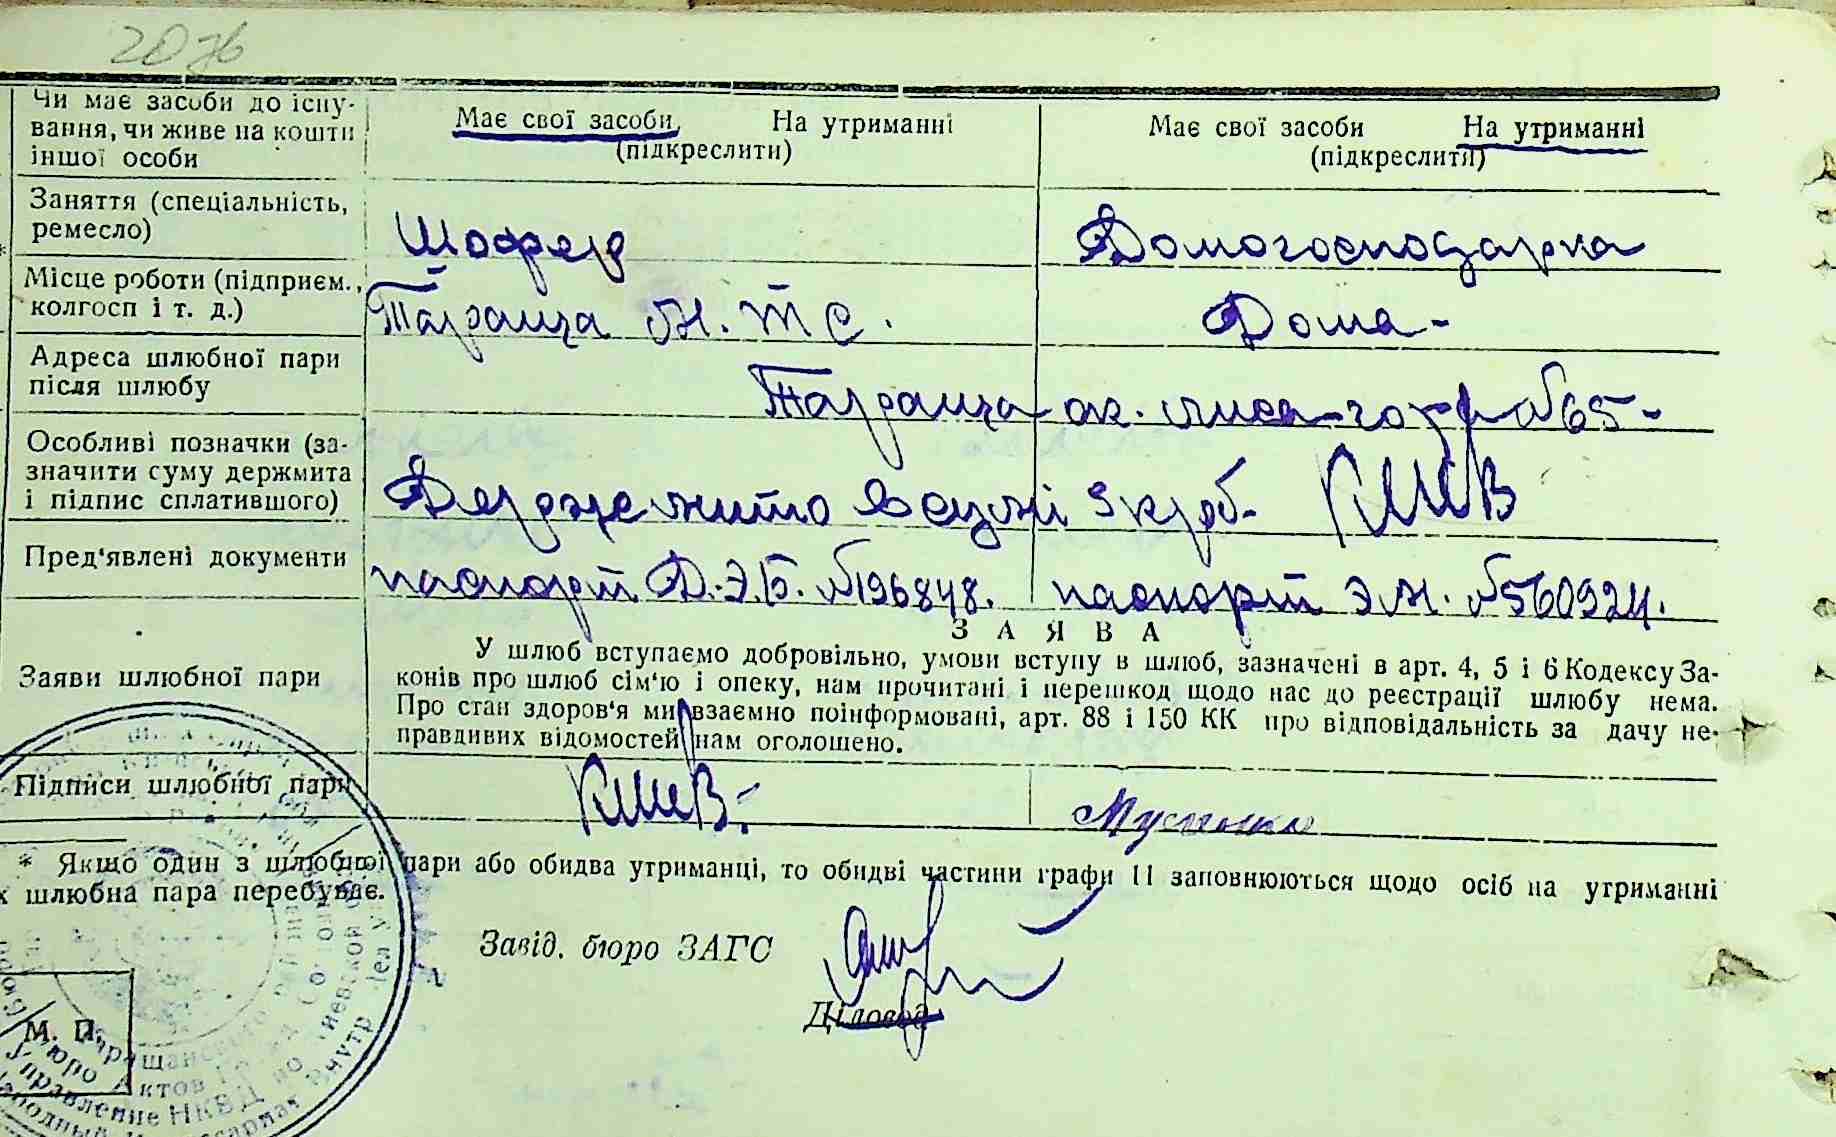 2076
Чи має засоби до існу-
вання, чи живе на кошти
іншої особи
Має свої засоби, На утриманні
(підкреслити)
Має свої засоби На утриманні
(підкреслити)
Заняття (спеціальність,
ремесло)
Шофер
Домогосподарка
Місце роботи (підприєм.,
колгосп і т. д.)
Тараща М. Т С.
Дома-
Адреса шлюбної пари
після шлюбу
Тараща №65-
Особливі позначки (за-
значити суму держмита
і підпис сплатившого)
Держе мито в сумі 3 крб.
Пред'явлені документи
паспорт Д.Э.Б. №196848.
паспорт Э.М. №560924.
ЗАЯВА
Заяви шлюбної пари
У шлюб вступаємо добровільно, умови вступу в шлюб, зазначені в арт. 4, 5 і 6 Кодексу За-
конів про шлюб сім'ю і опеку, нам прочитані і перешкод щодо нас до реєстрації шлюбу нема.
Про стан здоров'я ми взаємно поінформовані, арт. 88 і 150 КК про відповідальність за дачу не-
правдивих відомостей нам оголошено.
Підписи шлюбної пари
* Якщо один з шлюбної пари або обидва утриманці, то обидві частини графи 11 заповнюються щодо осіб на утриманні
х шлюбна пара перебуває.
Завід. бюро ЗАГС
Діловод
М. П.
Бюро Актов
Управление НКВД по Киевской